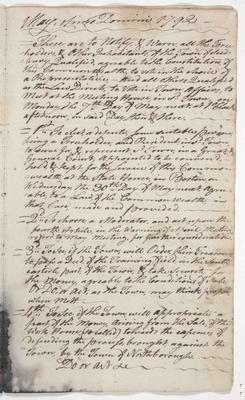 May, Anno Domini 1792
These are to Notify & Warn all the Free-
holders & other Inhabitants of the Town of
Qualified, agreable to the Constitution of
this Commonwealth, to vote in the choice of
a Representative, and all others Qualified
as the Law Directs, to Vote in Town Affairs, to
Meet at the Meeting House, in Town on
Monday the 7th Day of May next, at
afternoon, in said Day, then & there.
1st To elect & depute some suitable Person,
being a Freeholder, and Resident in Town
to Serve for, & represent them, in a Great &
General Court, appointed to be convened
held & kept for the Service of the Common-
wealth at the State House, in Boston on
Wednesday the 30th Day of May next, agre-
able to a Law of the Commonwealth, in
that Case made and Provided.
2ly To choose a Moderator, and act upon the
fourth Article, in the Warning of April Meeting
refer'd to this Meeting, for further consideration
3ly To see if the Town, will Order their Treasurer
to pass a Deed of the Training Field in the South
easterly part of the Town, & take Security
for Money, agreable to the Conditions of Sale
Or Do or Act as the Town, may think proper
when Mett
4thly To see if the Town will appropriate a
part of the Money arising from the Sale, of the
Work House (so called) toward the expence of
defending the process brought against the
Town, by the Town of Northborough
Do or Act &c